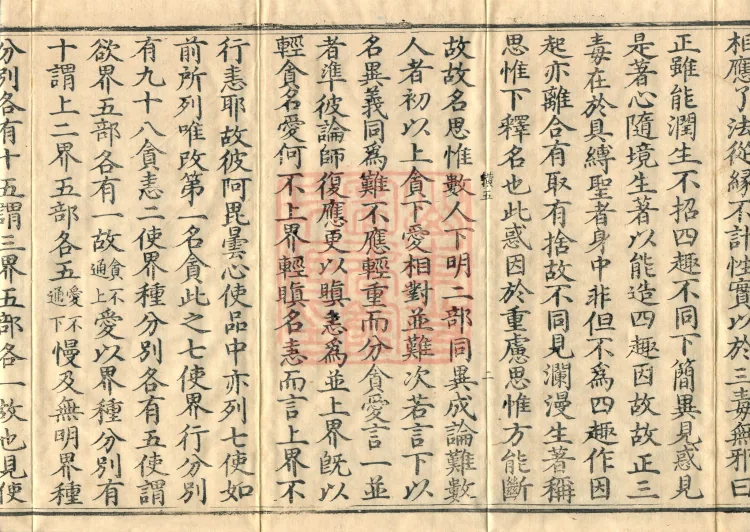 相應了法從緣不計性實以於三毒無邪曰
正雖能潤生不招四趣不同下簡異見惑見
是著心隨境生著以能造四趣因故故正三
毒在於具縛聖者身中非但不為四趣作因
起亦離合有取有捨故不同見瀾漫生著稱
思惟下釋名也此惑因於重慮思惟方能斷
橫五
二
故故名思惟數人下明二部同異成論難數
人者初以上貪下愛相對並難次若言下以
名異義同為難不應輕重而分貪愛言一並
者準彼論師復應更以瞋恚為並上界既以
輕貪名愛何不上界輕瞋名恚而言上界不
行恚耶故彼阿毘曇心使品中亦列七使如
前所列唯改第一名貪此之七使界行分別
有九十八貪恚二使界種分別各有五使謂
欲界五部各有一故貪不通上愛以界種分別有
十謂上二界五部各五愛不通下慢及無明界種
分別各有十五謂三界五部各一故也見使